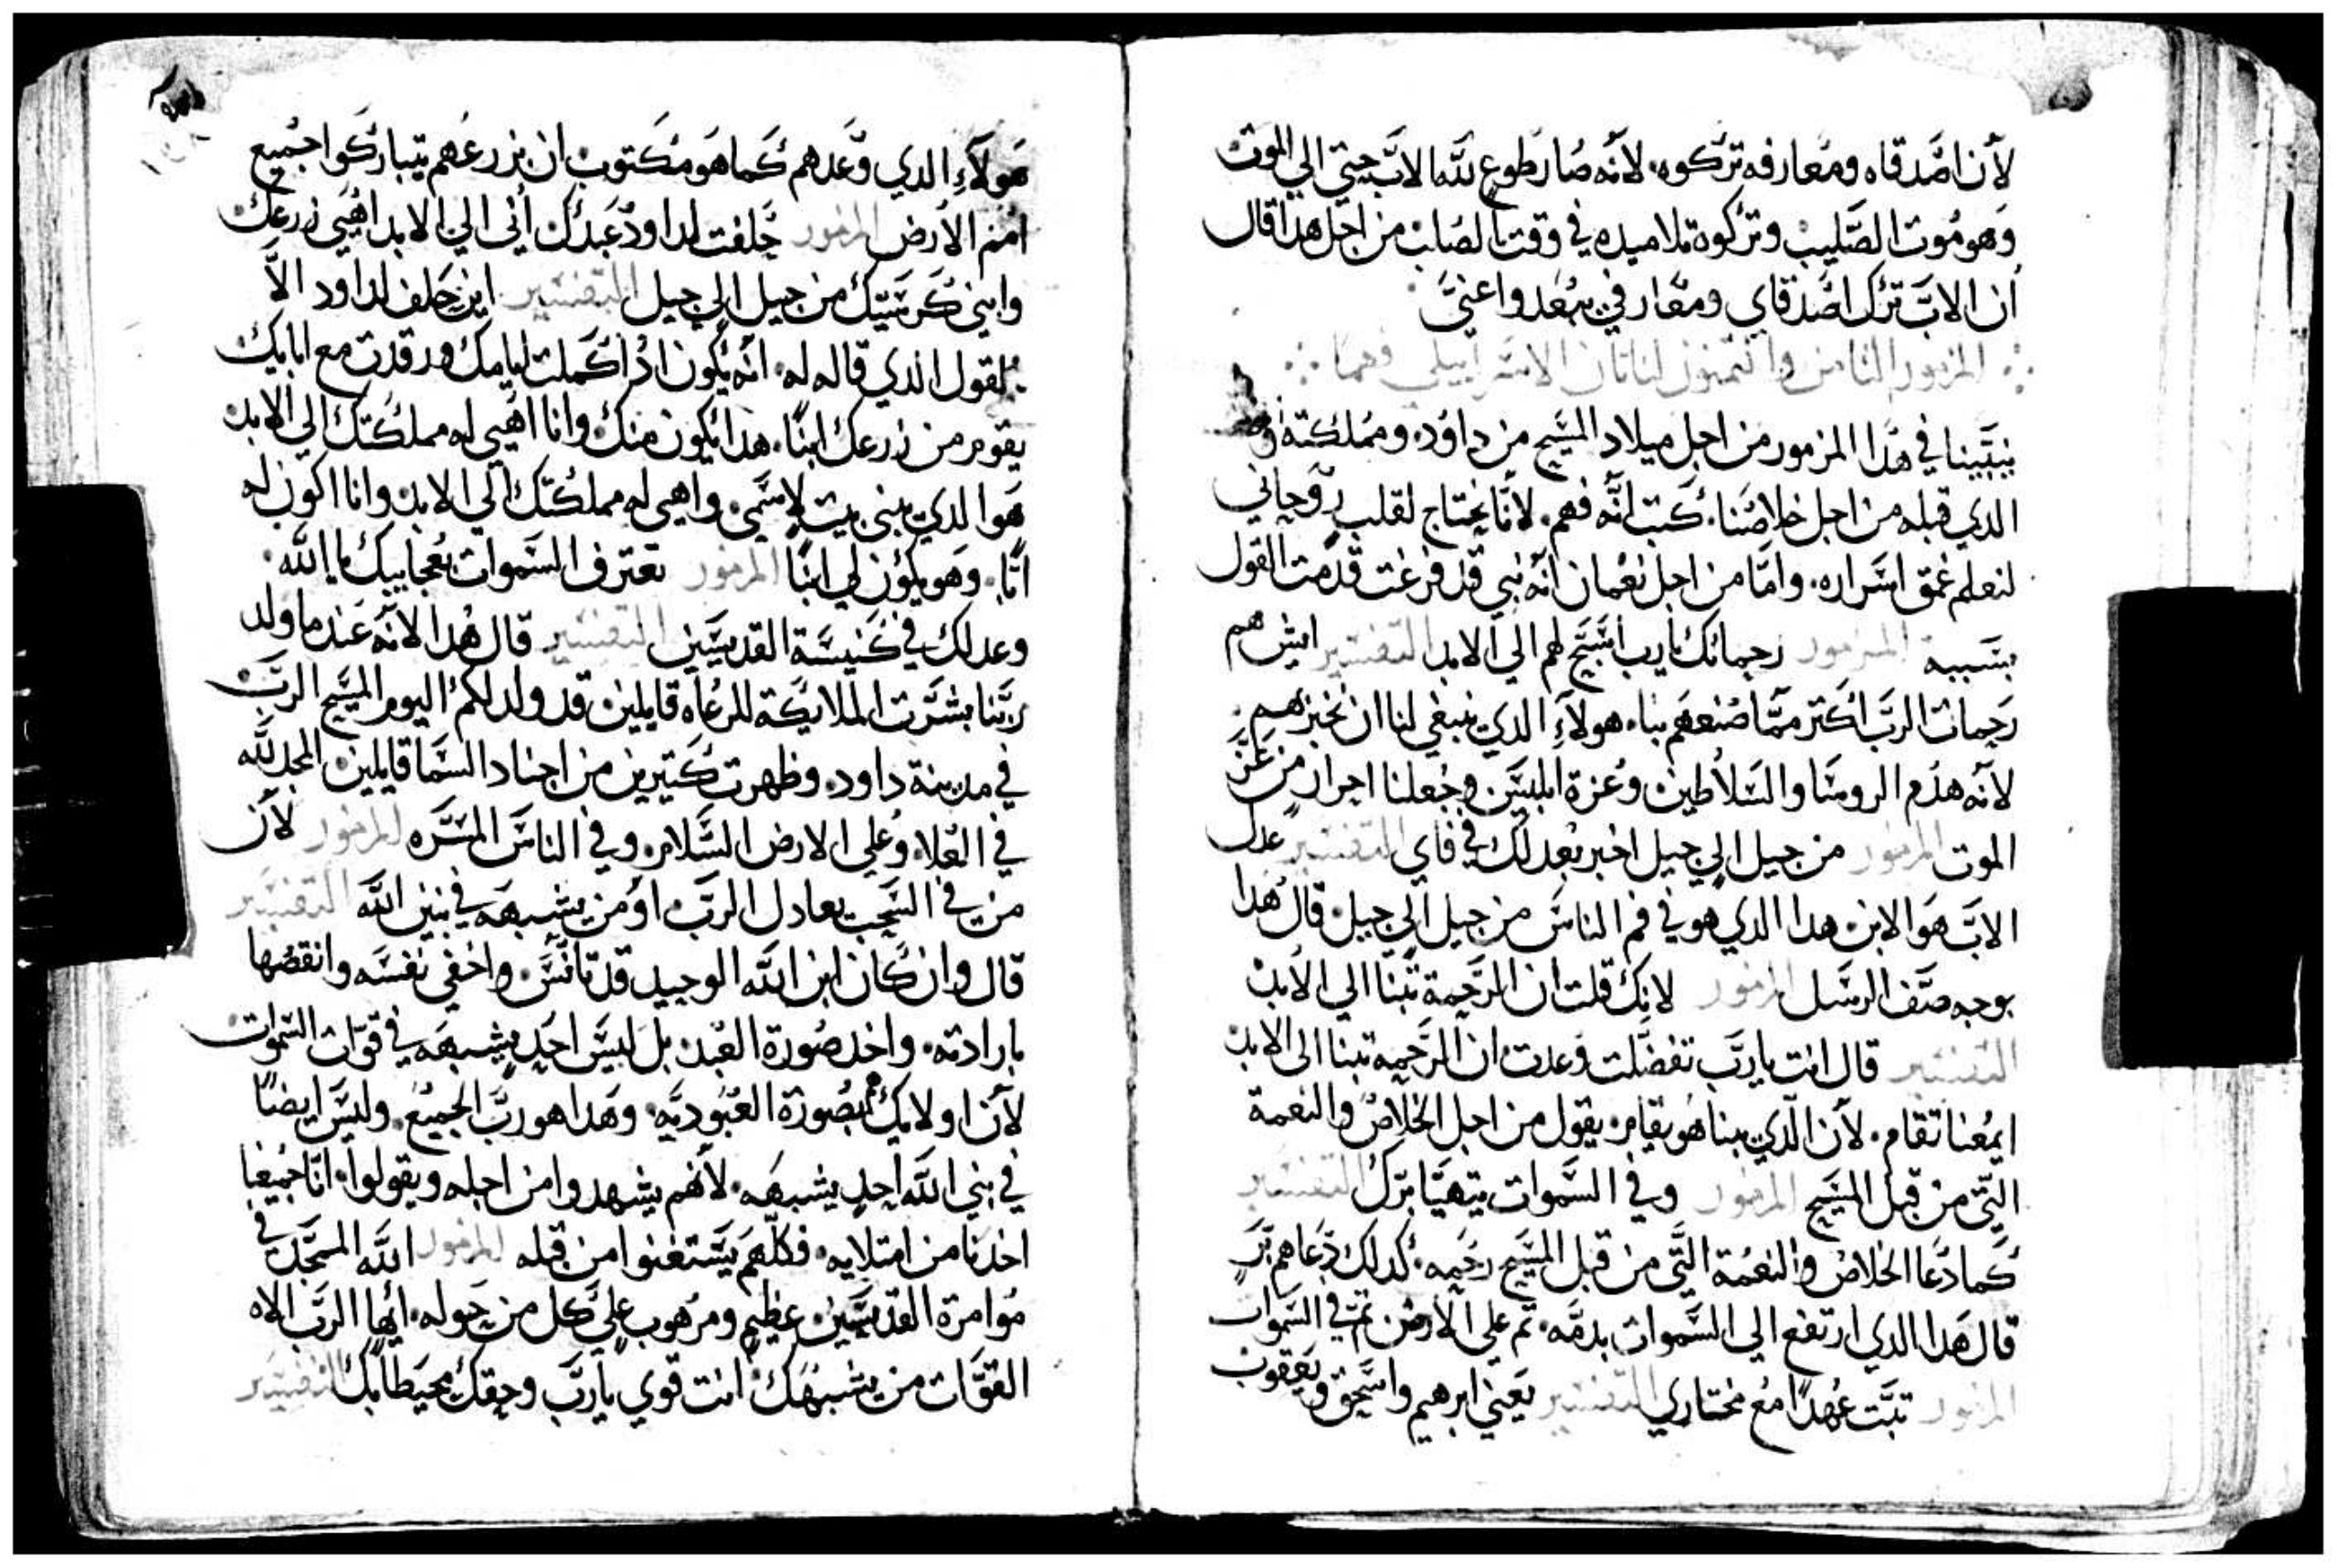 لأن اصدقاه ومعارفه تركوه. لانه صار طوع لله الاب حتي الي الموت
وهو موت الصليب وتركوه تلاميده في وقت الصلب من اجل هدا قال
ان الاب ترك اصدقاي ومعارفي يبعدوا عني
المزمور التامن والتمنون لناتان الاسراييلي فهما
يبينا في هدا المزمور من اجل ميلاد المسيح من داود. ومملكته
الدي قبله من اجل خلاصنا. كتب انه فهم. لأنا نحتاج لقلب روحاني
لنعلم عمق اسراره. واما من اجل نعمان انه نبي قد فرغت قدمت القول
بسببه المزمور رحماتك يارب اسبح لهم الي الابد التفسير ايش هم
رحمات الرب اكتر مما صنعهم بنا. هولآءِ الدي ينبغي لنا ان نخبر بهم
لأنه هدم الروسا والسلاطين وعزة ابليس وجعلنا احرار من عز
الموت المزمور من جيل الي جيل اخبر بعدلك في فاي التفسير عدل
الاب هو الابن هدا الدي هو في فم الناس من جيل الي جيل. قال هدا
بوجه صف الرسل المزمور لانك قلت ان الرحمة تبنا الي الأبد
التفسير قال انت يارب تفضلت وعدت ان الرحمه تبنا الى الابد
ايمعنا تقام. لأن الدي يبنا هو يقام. يقول من اجل الخلاص والنعمة
التي من قبل المسيح المزمور وفي السموات يتهيا برك التفسير
كما دعا الخلاص والنعمة التي من قبل المسيح رحمه. كدلك دعاهم بر
قال هدا الدي ارتفع الي السموات بدمه. تم علي الارض تم في السموات
المزمور تبت عهدًا مع مختاري التفسير يعني ابرهيم واسحق ويعقوب
هولآءِ الدي وعدهم كما هو مكتوب ان بزرعهم يتباركوا جميع
امم الأرض المزمور حلفت لداود عبدك أني الي الابد اهيي زرعك
وابني كرسيك من جيل الي جيل التفسير اين حلف لداود الاَّ
بلقول الدي قاله له. انه يكون ادا كملت ايامك ورقدت مع ابايك
يقوم من زرعك ابنًا. هدا يكون منك وانا اهيي له مملكتك الي الابد
هو الدي يبني بيت لاسمي. واهيي له مملكتك الي الابد وانا اكون له
ابًا. وهو يكون لي ابنًا المزمور تعترف السموات بعجايبك يا الله
وعدلك في كنيسة القديسين التفسير قال هدا لأنه عند ما ولد
ربنا بشرت الملايكة للرعاه قايلين قد ولد لكم اليوم المسيح الرب
في مدينة داود. وظهرت كتيرين من اجناد السما قايلين المجد لله
في العلا. وعلي الارض السلام. وفي الناس المسره المزمور لأن
من في السحب يعادل الرب. اومن يشبهه في بنين الله التفسير
قال وان كان ابن الله الوحيد قد تانس. واخفي نفسه وانقصها
بارادته. واخد صورة العبد. بل ليس احدٍ يشبهه في قوات السموات
لأن اولايك بصورة العبوديه. وهدا هو رب الجميع. وليس ايضًا
في بني الله احدٍ يشبهه. لأنهم يشهدوا من اجله ويقولوا. انا جميعًا
اخدنا من امتلايه. فكلهم يستغنوا من قبله المزمور الله الممجد في
مُوامرة القديسين. عظيم ومرهوب علي كل من حوله. ايها الرب الاه
القوات من يشبهك. انت قوي يارب وحقك محيطًا بك التفسير